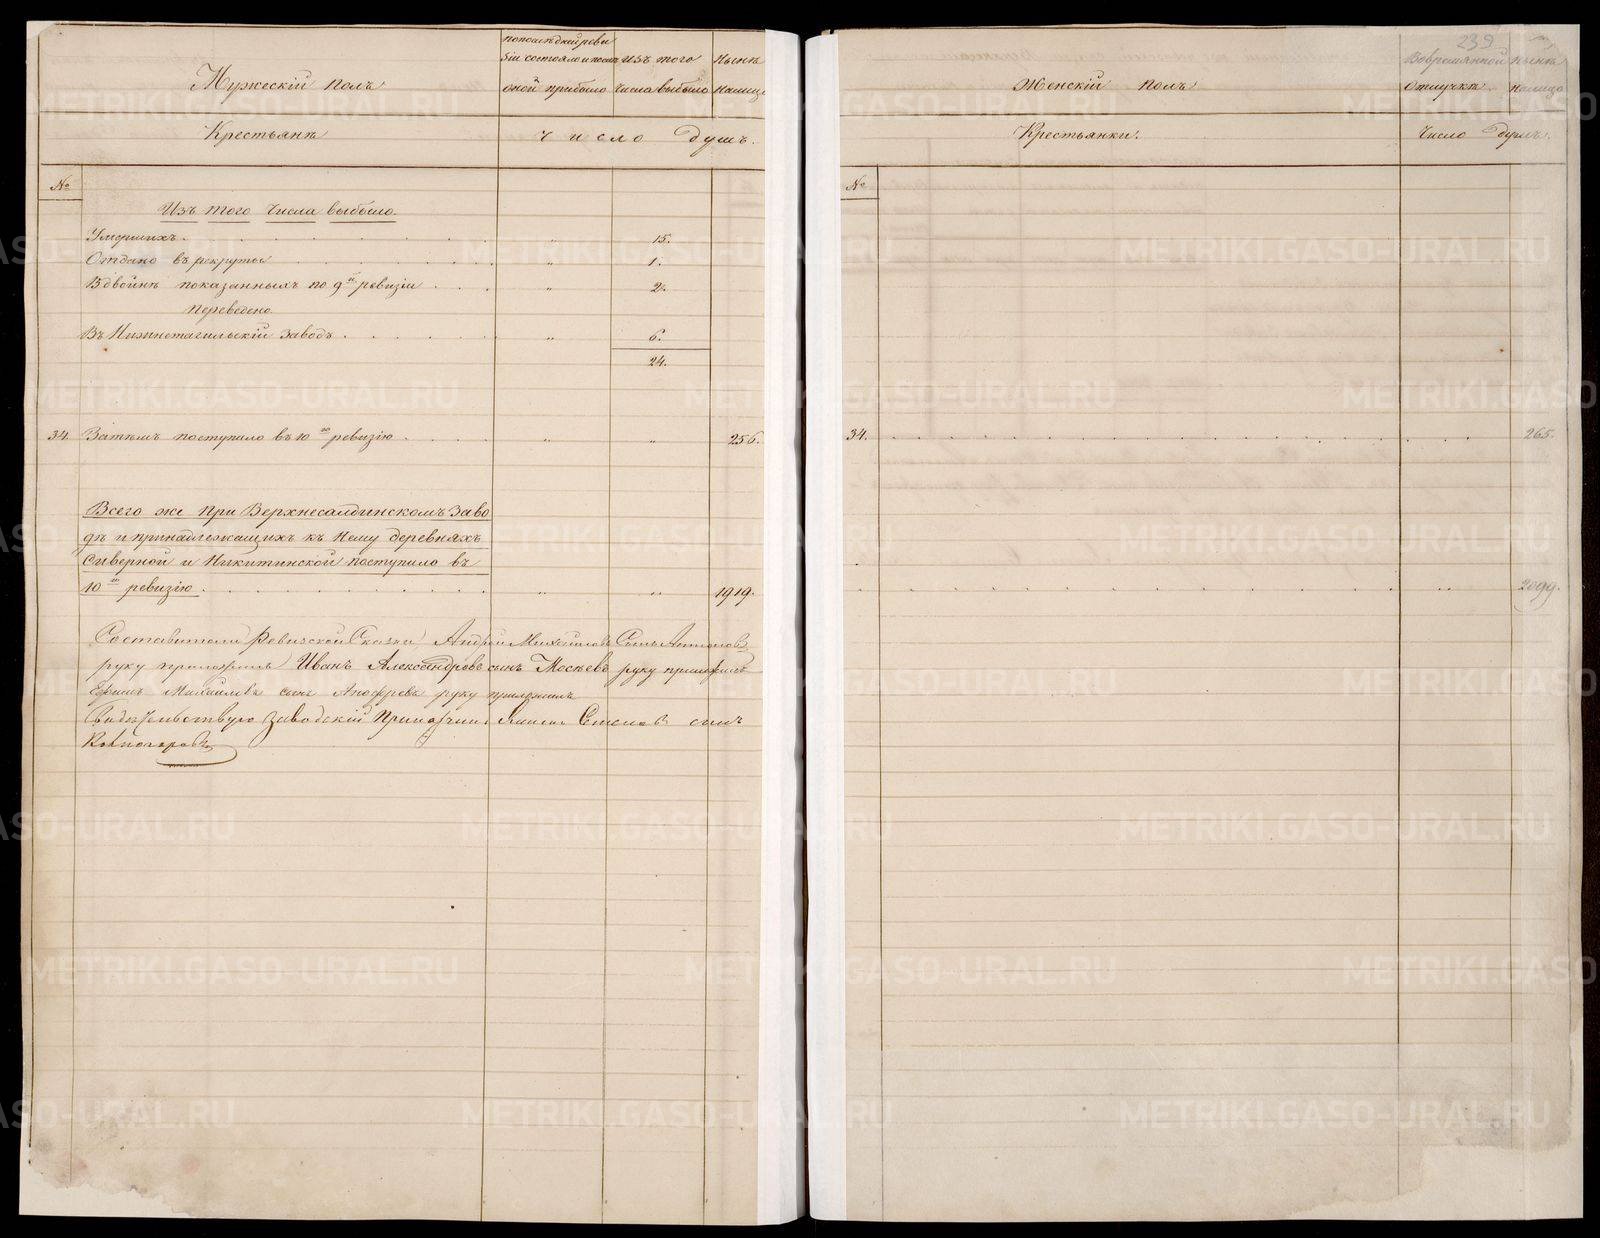 Мужескій полъ
по послѣдней реви
зіи состояло и послѣ
оной прибыло
изъ того
числа выбыло
нынѣ
налицо
Крестьяне
число душъ.
№
Изъ того числа выбыло.
Умершихъ 15.
Отдано въ рекруты 1.
Вдвойнѣ показанныхъ по 9й ревизіи 2.
переведено
Въ Нижнетагильскій заводъ 6.
24.
34. Затемъ поступило въ 10ю ревизію 256.
Всего же при Верхнесалдинскомъ заво
дѣ и принадлежащихъ къ нему деревняхъ
Сиверной и Никитинской поступило въ
10ю ревизію 1919.
Составители Ревизской Сказки Андрей Михайловъ Сынъ
руку приложилъ Иванъ Александровъ сынъ руку приложилъ
Ефимъ Михаиловъ сынъ руку приложилъ
Свидетельствую заводскій Прикащикъ сынъ
239
Женскій полъ
Во временной
отлучкѣ
нынѣ
налицо
Крестьянки.
Число душъ.
№
34. 265.
2099.
METRIKI.GASO-URAL.RU